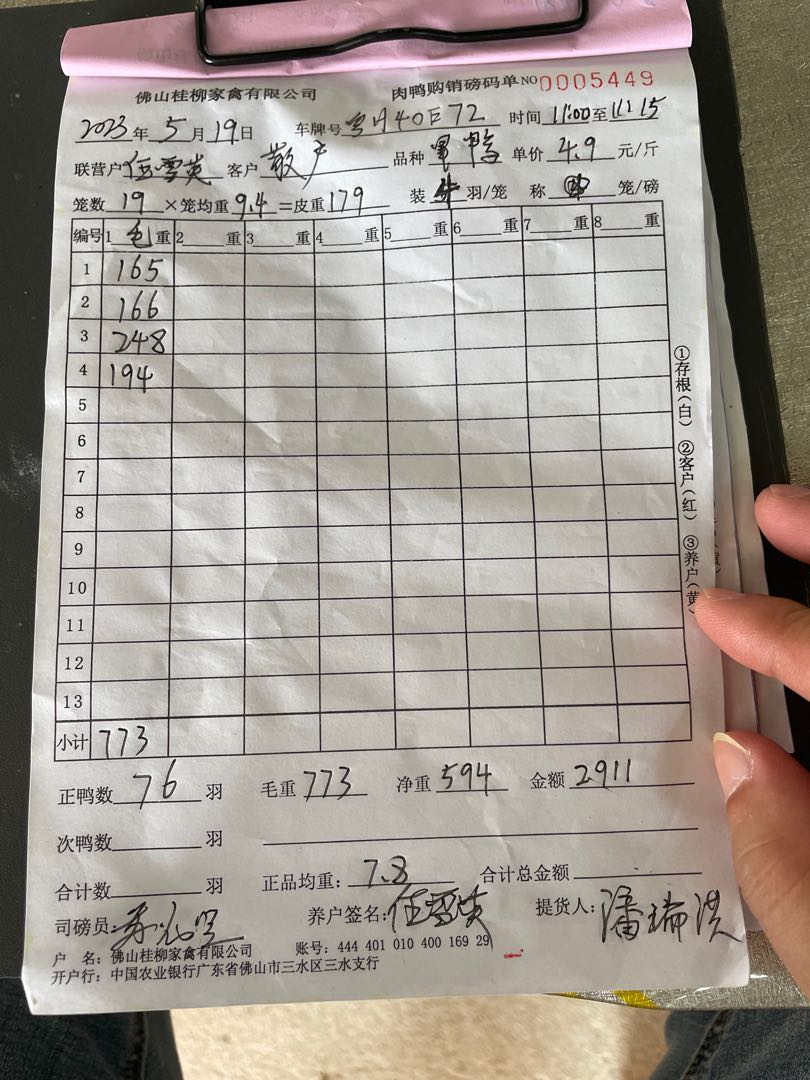 佛山桂柳家禽有限公司 肉鸭购销磅码单 NO 0005449
2023年5月19日 车牌号 40 72 时间 11:00至11:15
联营户 伍雪英 客户 散户 品种 单价 4.9 元/斤
笼数 19 ×笼均重 9.4 =皮重 179 装 羽/笼 称 笼/磅
编号 1 毛 重 2 重 3 重 4 重 5 重 6 重 7 重 8 重
1 165
2 166
3 248
4 194
5
6
7
8
9
10
11
12
13
小计 773
①存根(白) ②客户(红) ③养户(黄)
正鸭数 76 羽 毛重 773 净重 594 金额 2911
次鸭数 羽
合计数 羽 正品均重: 7.8 合计总金额
司磅员: 养户签名: 伍雪英 提货人: 潘瑞洪
户 名: 佛山桂柳家禽有限公司 账号: 444 401 010 400 169 29
开户行: 中国农业银行广东省佛山市三水区三水支行